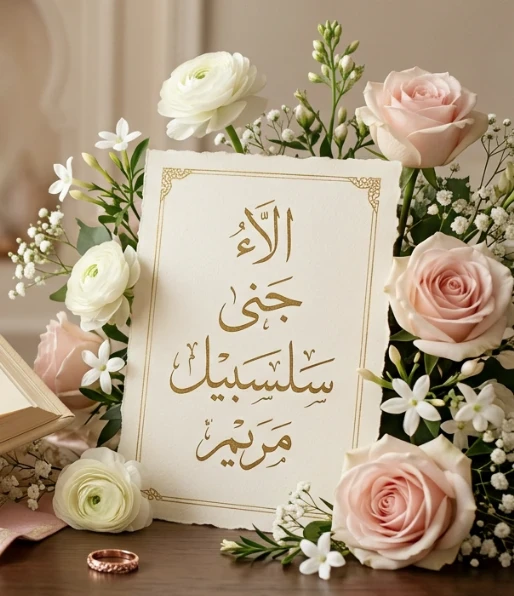 الَاَّءُ
جَنى
سَلسَبيْل
مَريَم